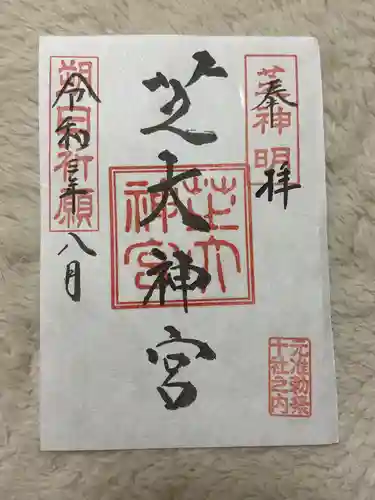 奉拝
芝神明
芝大神宮
芝大神宮
令和年八月
朔日祈願
元准勅祭
十社之内